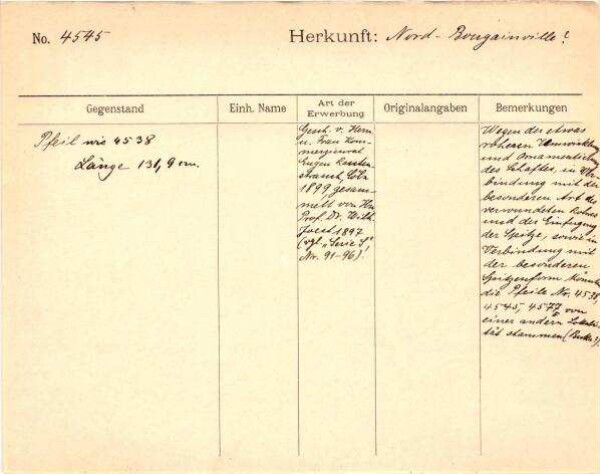 No. 4545
Herkunft: Nord-Bougainville?
Gegenstand
Einh. Name
Art der Erwerbung
Originalangaben
Bemerkungen
Pfeil wie 4538
Länge 131,9 cm.
Gesch. v. Herrn
u. Frau Kom-
merzienrat
Eugen Rauten-
strauch, Cöln
1899 gesam-
melt von Hn
Prof. Dr. Wilh.
Joest 1897
(vgl. „Serie S",
Nr. 91-96).
Wegen der etwas
roheren Umwicklung
und Ornamentierung
des Schaftes, in Ver-
bindung mit der
besonderen Art des
verwundeten Rohres
und der Einfügung
der Spitze, sowie in
Verbindung mit
der besonderen
Spitzenform könnten
die Pfeile No. 4538,
4545, 4577 von
einer andern Lokali-
tät stammen